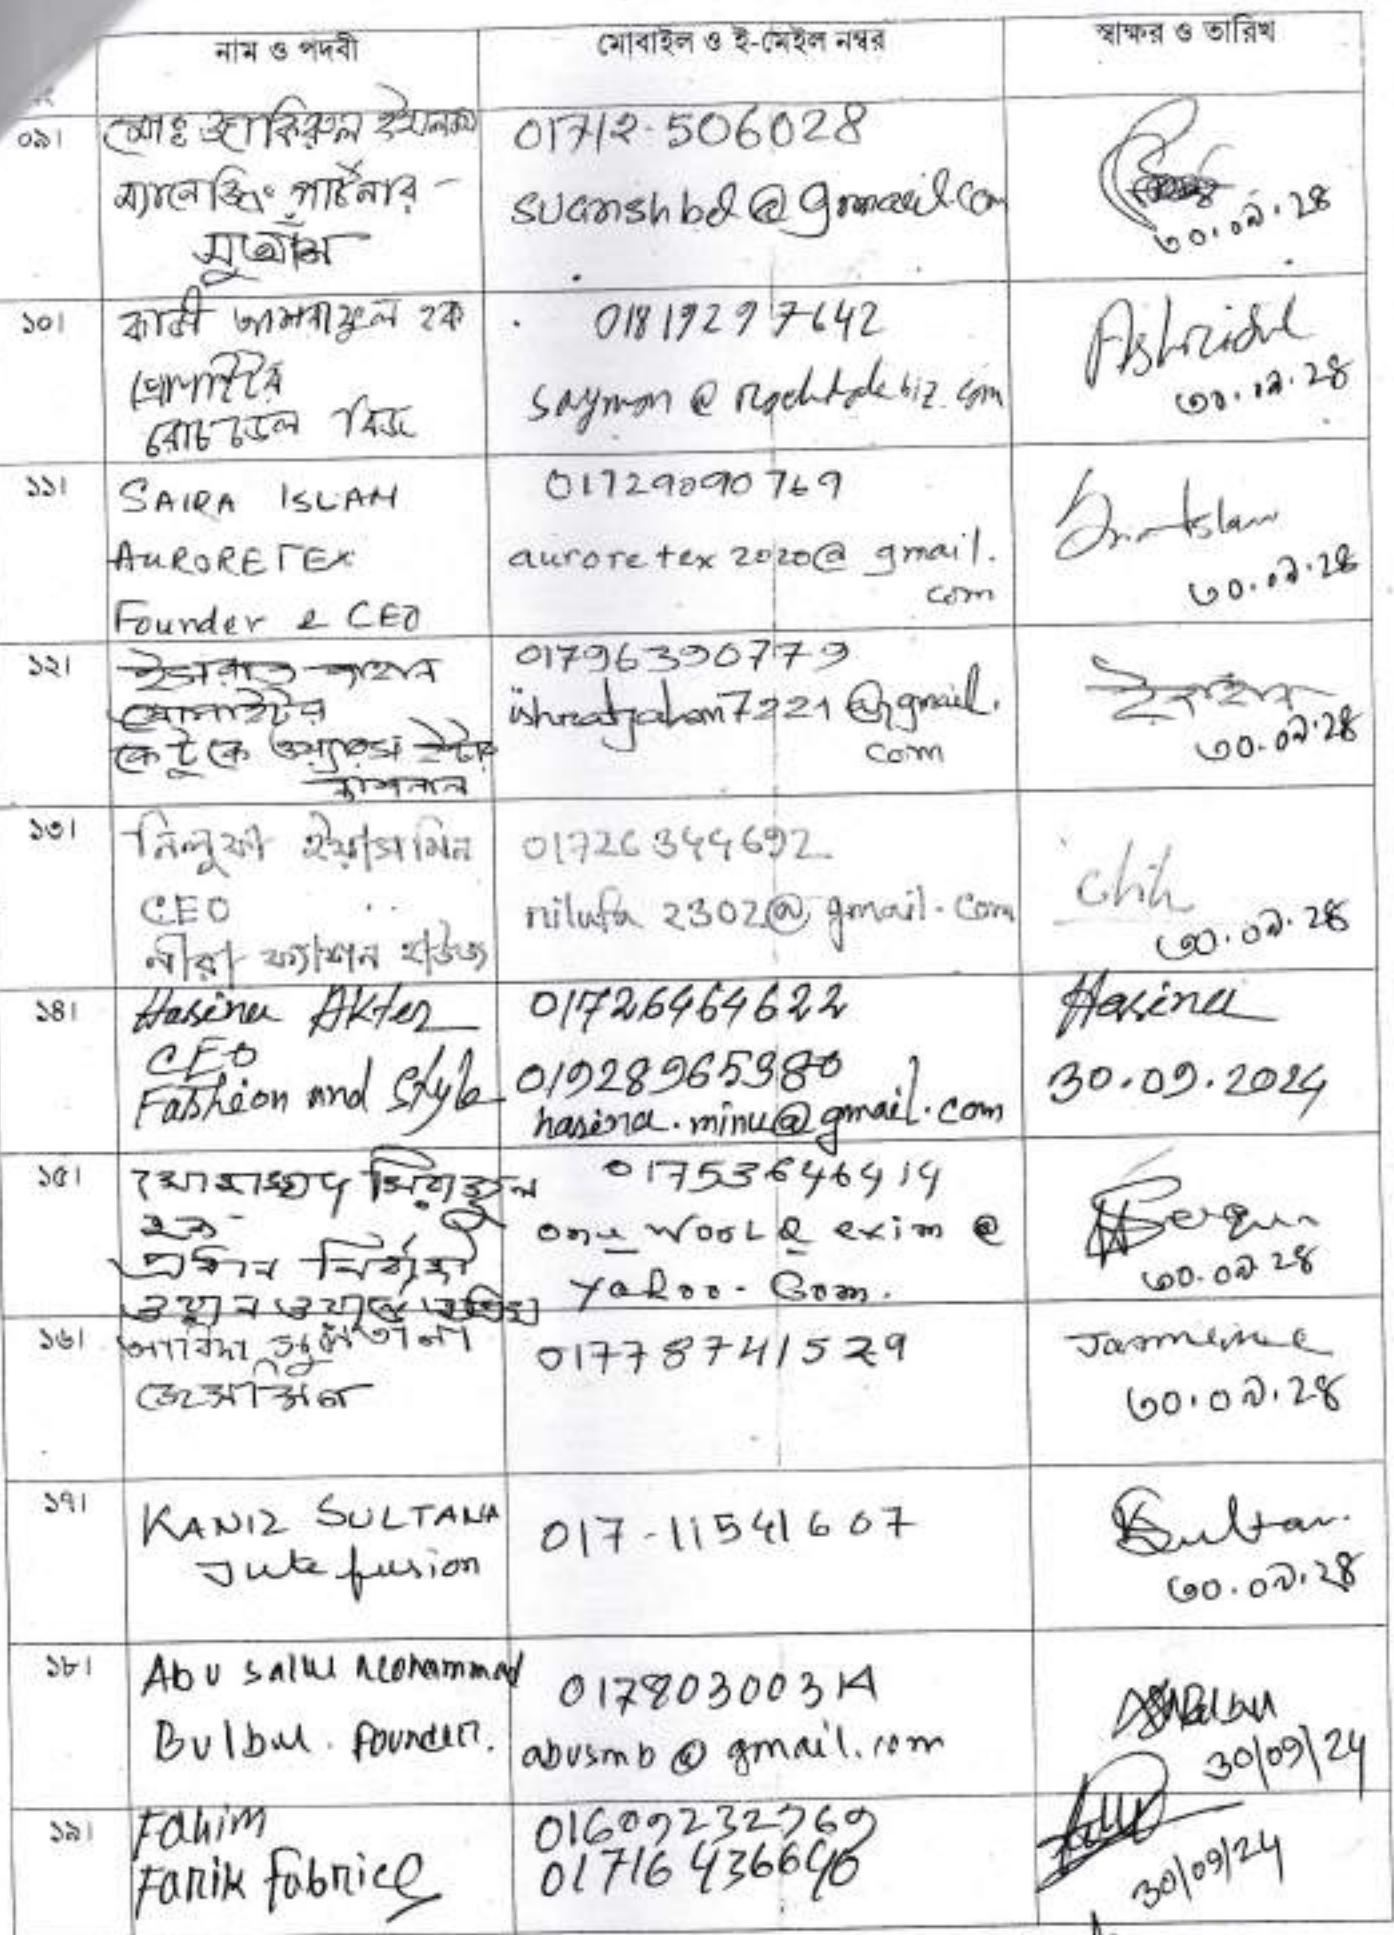 নাম ও পদবী
মোবাইল ও ই-মেইল নম্বর
স্বাক্ষর ও তারিখ
০৯।
মোঃ জাকিরুল ইসলাম
ম্যানেজিং পার্টনার -
01712-506028
৩০.০৯.২৪
১০।
কাজী আশরাফুল হক
প্রোপাইটর
রোচডেল বিজ
01819297642
৩০.০৯.২৪
১১।
SAIRA ISLAM
AURORETEX
Founder & CEO
01729090769
auroretex2020@gmail.
com
৩০.০৯.২৪
১২।
ইসরাত জাহান
প্রোপাইটর
01796390779
ishratjahan7221@gmail.
com
৩০.০৯.২৪
১৩।
নিলুফা ইয়াসমিন
CEO
নীরা ফ্যাশন হাউজ
01726344692
nilufa2302@gmail.com
৩০.০৯.২৪
১৪।
Hasina Akter
CEO
Fashion and Style
01726464622
01928965980
hasina.minu@gmail.com
Hasina
30.09.2024
১৫।
মোহাম্মদ সিরাজুল
হক
প্রধান নির্বাহী
01753646414
Yahoo.Com.
৩০.০৯.২৪
১৬।
সুলতানা
জেসমিন
01778741529
Jasmine
৩০.০৯.২৪
১৭।
KANIZ SULTANA
Jute fusion
017-11541607
Sultan
৩০.০৯.২৪
১৮।
Abu Saleh Mohammad
Bulbul. Founder.
01780300314
abusmb@gmail.com
30/09/24
১৯।
Fahim
Farik Fabrics
01609232969
01716436640
30/09/24